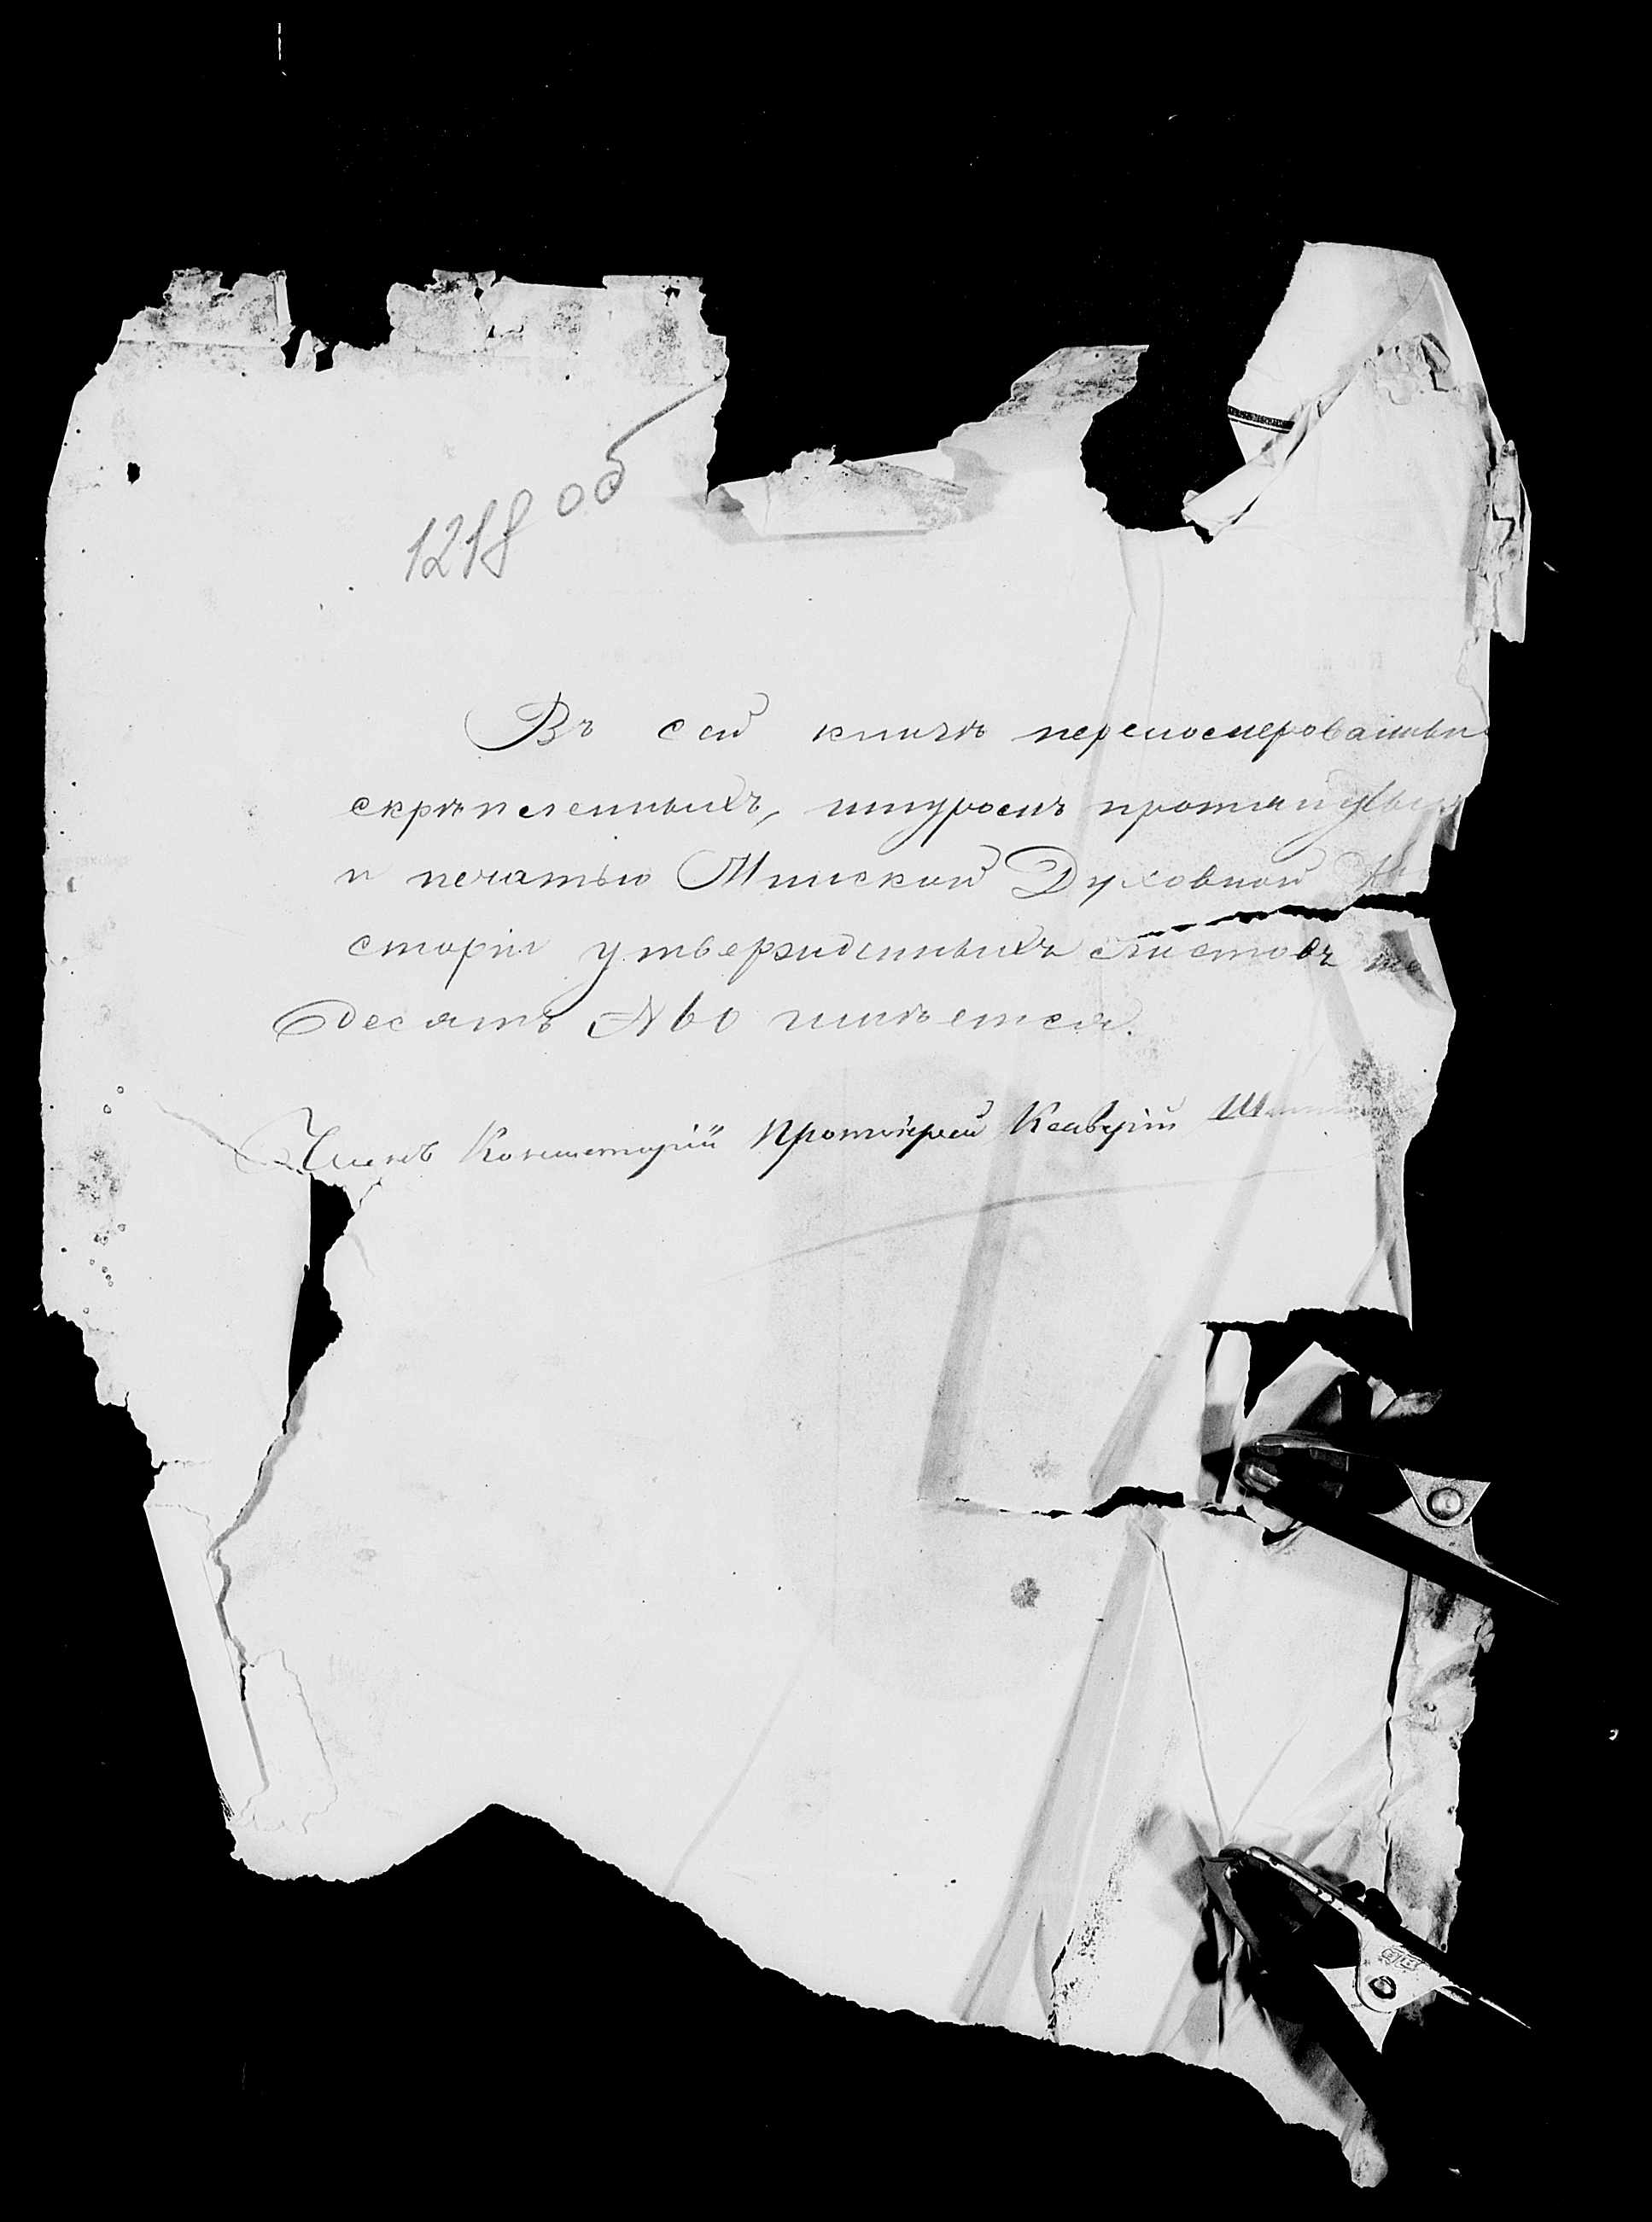 1218 об
Въ сей книгѣ перенумерованны
скрѣпленныхъ, шнуромъ протянуты
и печатью Минской Духовной Ко
сторіи утвержденныхъ листовъ ше
десятъ №60 имѣется.
Членъ Консисторіи Протоіерей Ксаверій